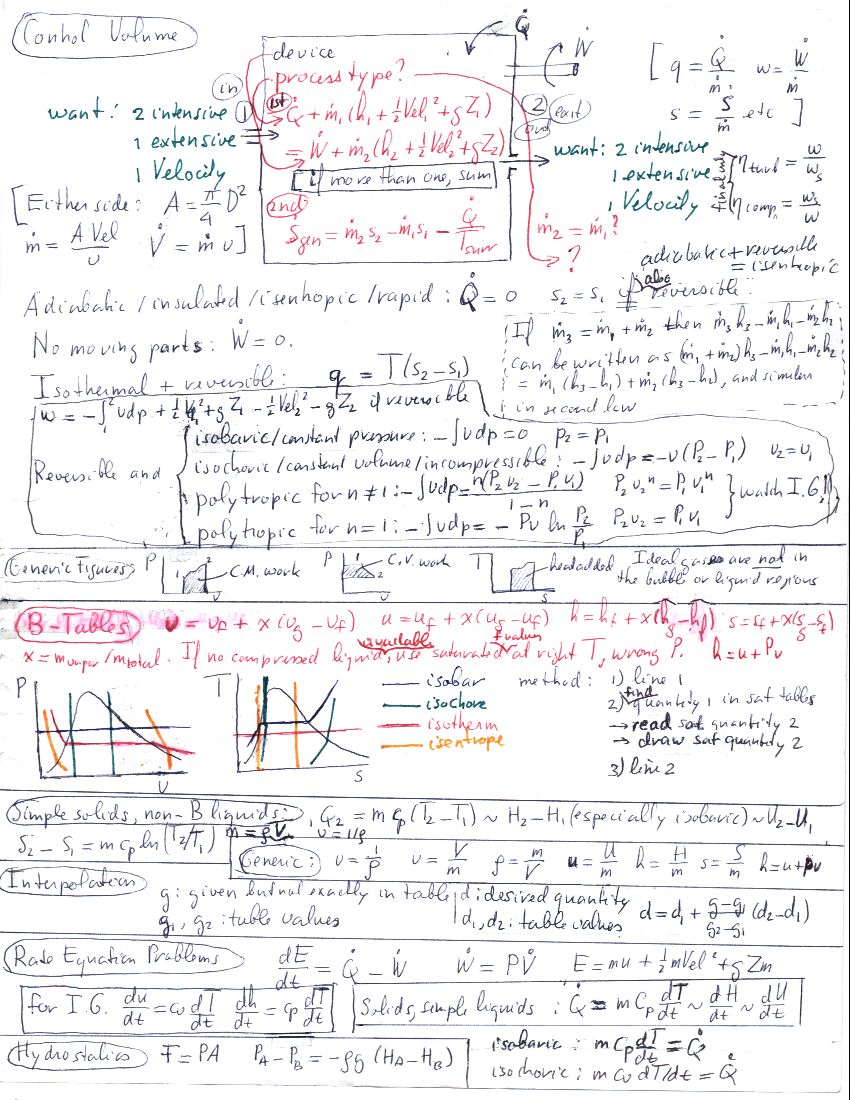 Control Volume
device
process type?
Q̇
Ẇ
[ q = Q̇/ṁ  w = Ẇ/ṁ
s = Ṡ/ṁ etc ]
in
want: 2 intensive
1 extensive
1 Velocity
1
1st
Q̇ + ṁ₁(h₁ + ½Vel₁² + gZ₁)
= Ẇ + ṁ₂(h₂ + ½Vel₂² + gZ₂)
[if more than one, sum]
2nd
Ṡgen = ṁ₂s₂ - ṁ₁s₁ - Q̇/Tsurr
2 exit
out
want: 2 intensive
1 extensive
1 Velocity
finally
ηturb = w/ws
ηcomp = ws/w
ṁ₂ = ṁ₁?
?
[Either side: A = π/4 D²
ṁ = A Vel/υ  V̇ = ṁ υ]
adiabatic + reversible
= isentropic
Adiabatic / insulated / isentropic / rapid: Q̇ = 0  s₂ = s₁ if also reversible.
No moving parts: Ẇ = 0.
Isothermal + reversible: q = T(s₂ - s₁)
If ṁ₃ = ṁ₁ + ṁ₂ then ṁ₃h₃ - ṁ₁h₁ - ṁ₂h₂
can be written as (ṁ₁ + ṁ₂)h₃ - ṁ₁h₁ - ṁ₂h₂
= ṁ₁(h₃ - h₁) + ṁ₂(h₃ - h₂), and similar
in second law
w = -∫₁²υdp + ½Vel₁² + gZ₁ - ½Vel₂² - gZ₂ if reversible
Reversible and
isobaric/constant pressure: -∫υdp = 0  P₂ = P₁
isochoric/constant volume/incompressible: -∫υdp = -υ(P₂ - P₁)  υ₂ = υ₁
polytropic for n ≠ 1: -∫υdp = n(P₂υ₂ - P₁υ₁)/(1 - n)  P₂υ₂ⁿ = P₁υ₁ⁿ
polytropic for n = 1: -∫υdp = -Pυ ln P₂/P₁  P₂υ₂ = P₁υ₁
watch I.G.!
Generic figures
P 1 2 C.M. work υ
P 1 2 C.V. work υ
T heat added S
Ideal gases are not in
the bubble or liquid regions
B-Tables
υ = υf + x(υg - υf)  u = uf + x(ug - uf)  h = hf + x(hg - hf)  s = sf + x(sg - sf)
x = mvapor/mtotal. If no compressed liquid available, use saturated f values at right T, wrong P.  h = u + Pυ
P
υ
T
S
isobar
isochore
isotherm
isentrope
method: 1) line 1
2) find quantity 1 in sat tables
→ read sat quantity 2
→ draw sat quantity 2
3) line 2
Simple solids, non-B liquids:  Q₂ = m cp(T₂ - T₁) ~ H₂ - H₁ (especially isobaric) ~ U₂ - U₁
S₂ - S₁ = m cp ln(T₂/T₁)  m = ρV  υ = 1/ρ
Generic:  υ = 1/ρ  υ = V/m  ρ = m/V  u = U/m  h = H/m  s = S/m  h = u + pυ
Interpolation
g: given but not exactly in table
g₁, g₂: table values
d: desired quantity
d₁, d₂: table values
d = d₁ + (g - g₁)/(g₂ - g₁) (d₂ - d₁)
Rate Equation Problems  dE/dt = Q̇ - Ẇ  Ẇ = PV̇  E = mu + ½mVel² + gZm
for I.G. du/dt = cv dT/dt  dh/dt = cp dT/dt
Solids, simple liquids: Q̇ = m Cp dT/dt ~ dH/dt ~ dU/dt
Hydrostatics  F = PA  PA - PB = -ρg (HA - HB)
isobaric: m Cp dT/dt = Q̇
isochoric: m cv dT/dt = Q̇